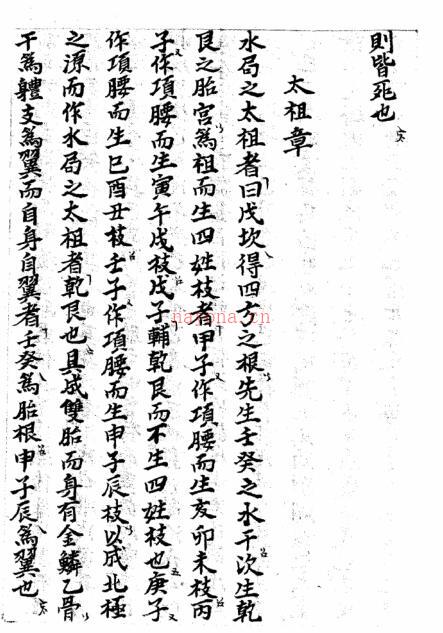 則皆死也
太祖章
水局之太祖者曰戊坎得四方之根先生壬癸之水干次生乾
艮之胎宮爲祖而生四姓枝者甲子作項腰而生亥卯未枝丙
子作項腰而生寅午戌枝戊子輔乾艮而不生四姓枝也庚子
作項腰而生巳酉丑枝壬子作項腰而生申子辰枝以成北極
之源而作水局之太祖者乾艮也具成雙胎而身有金鱗乙骨
干爲體支爲翼而自身自翼者壬癸爲胎根申子辰爲翼也
nayona.cn